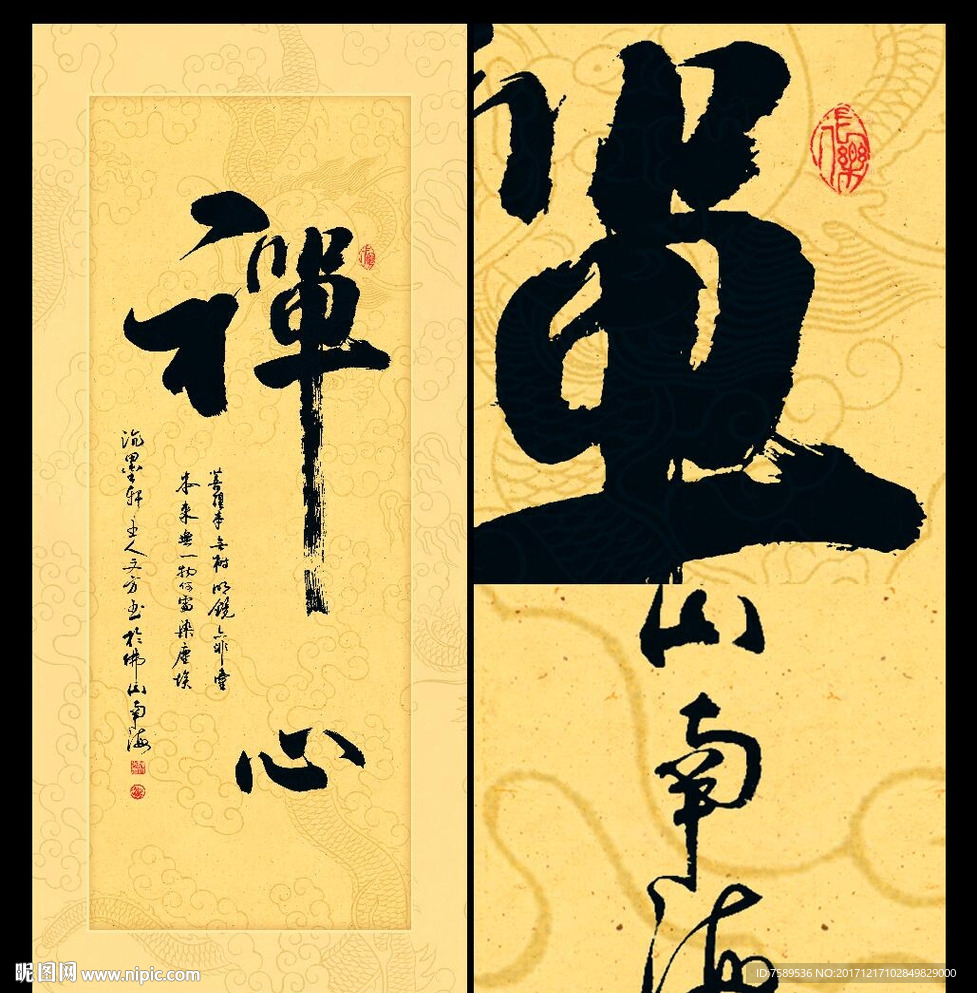 禪
心
菩提本無樹明鏡亦非臺
本來無一物何處染塵埃
墨軒主人文方書於佛山南海
長樂
山南海
昵图网 www.nipic.com
ID:7589536 NO:20171217102849829000